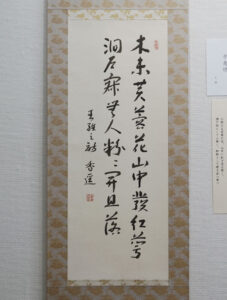 木末芙蓉花山中發紅萼
澗戶寂無人紛々開且落
王維之詩